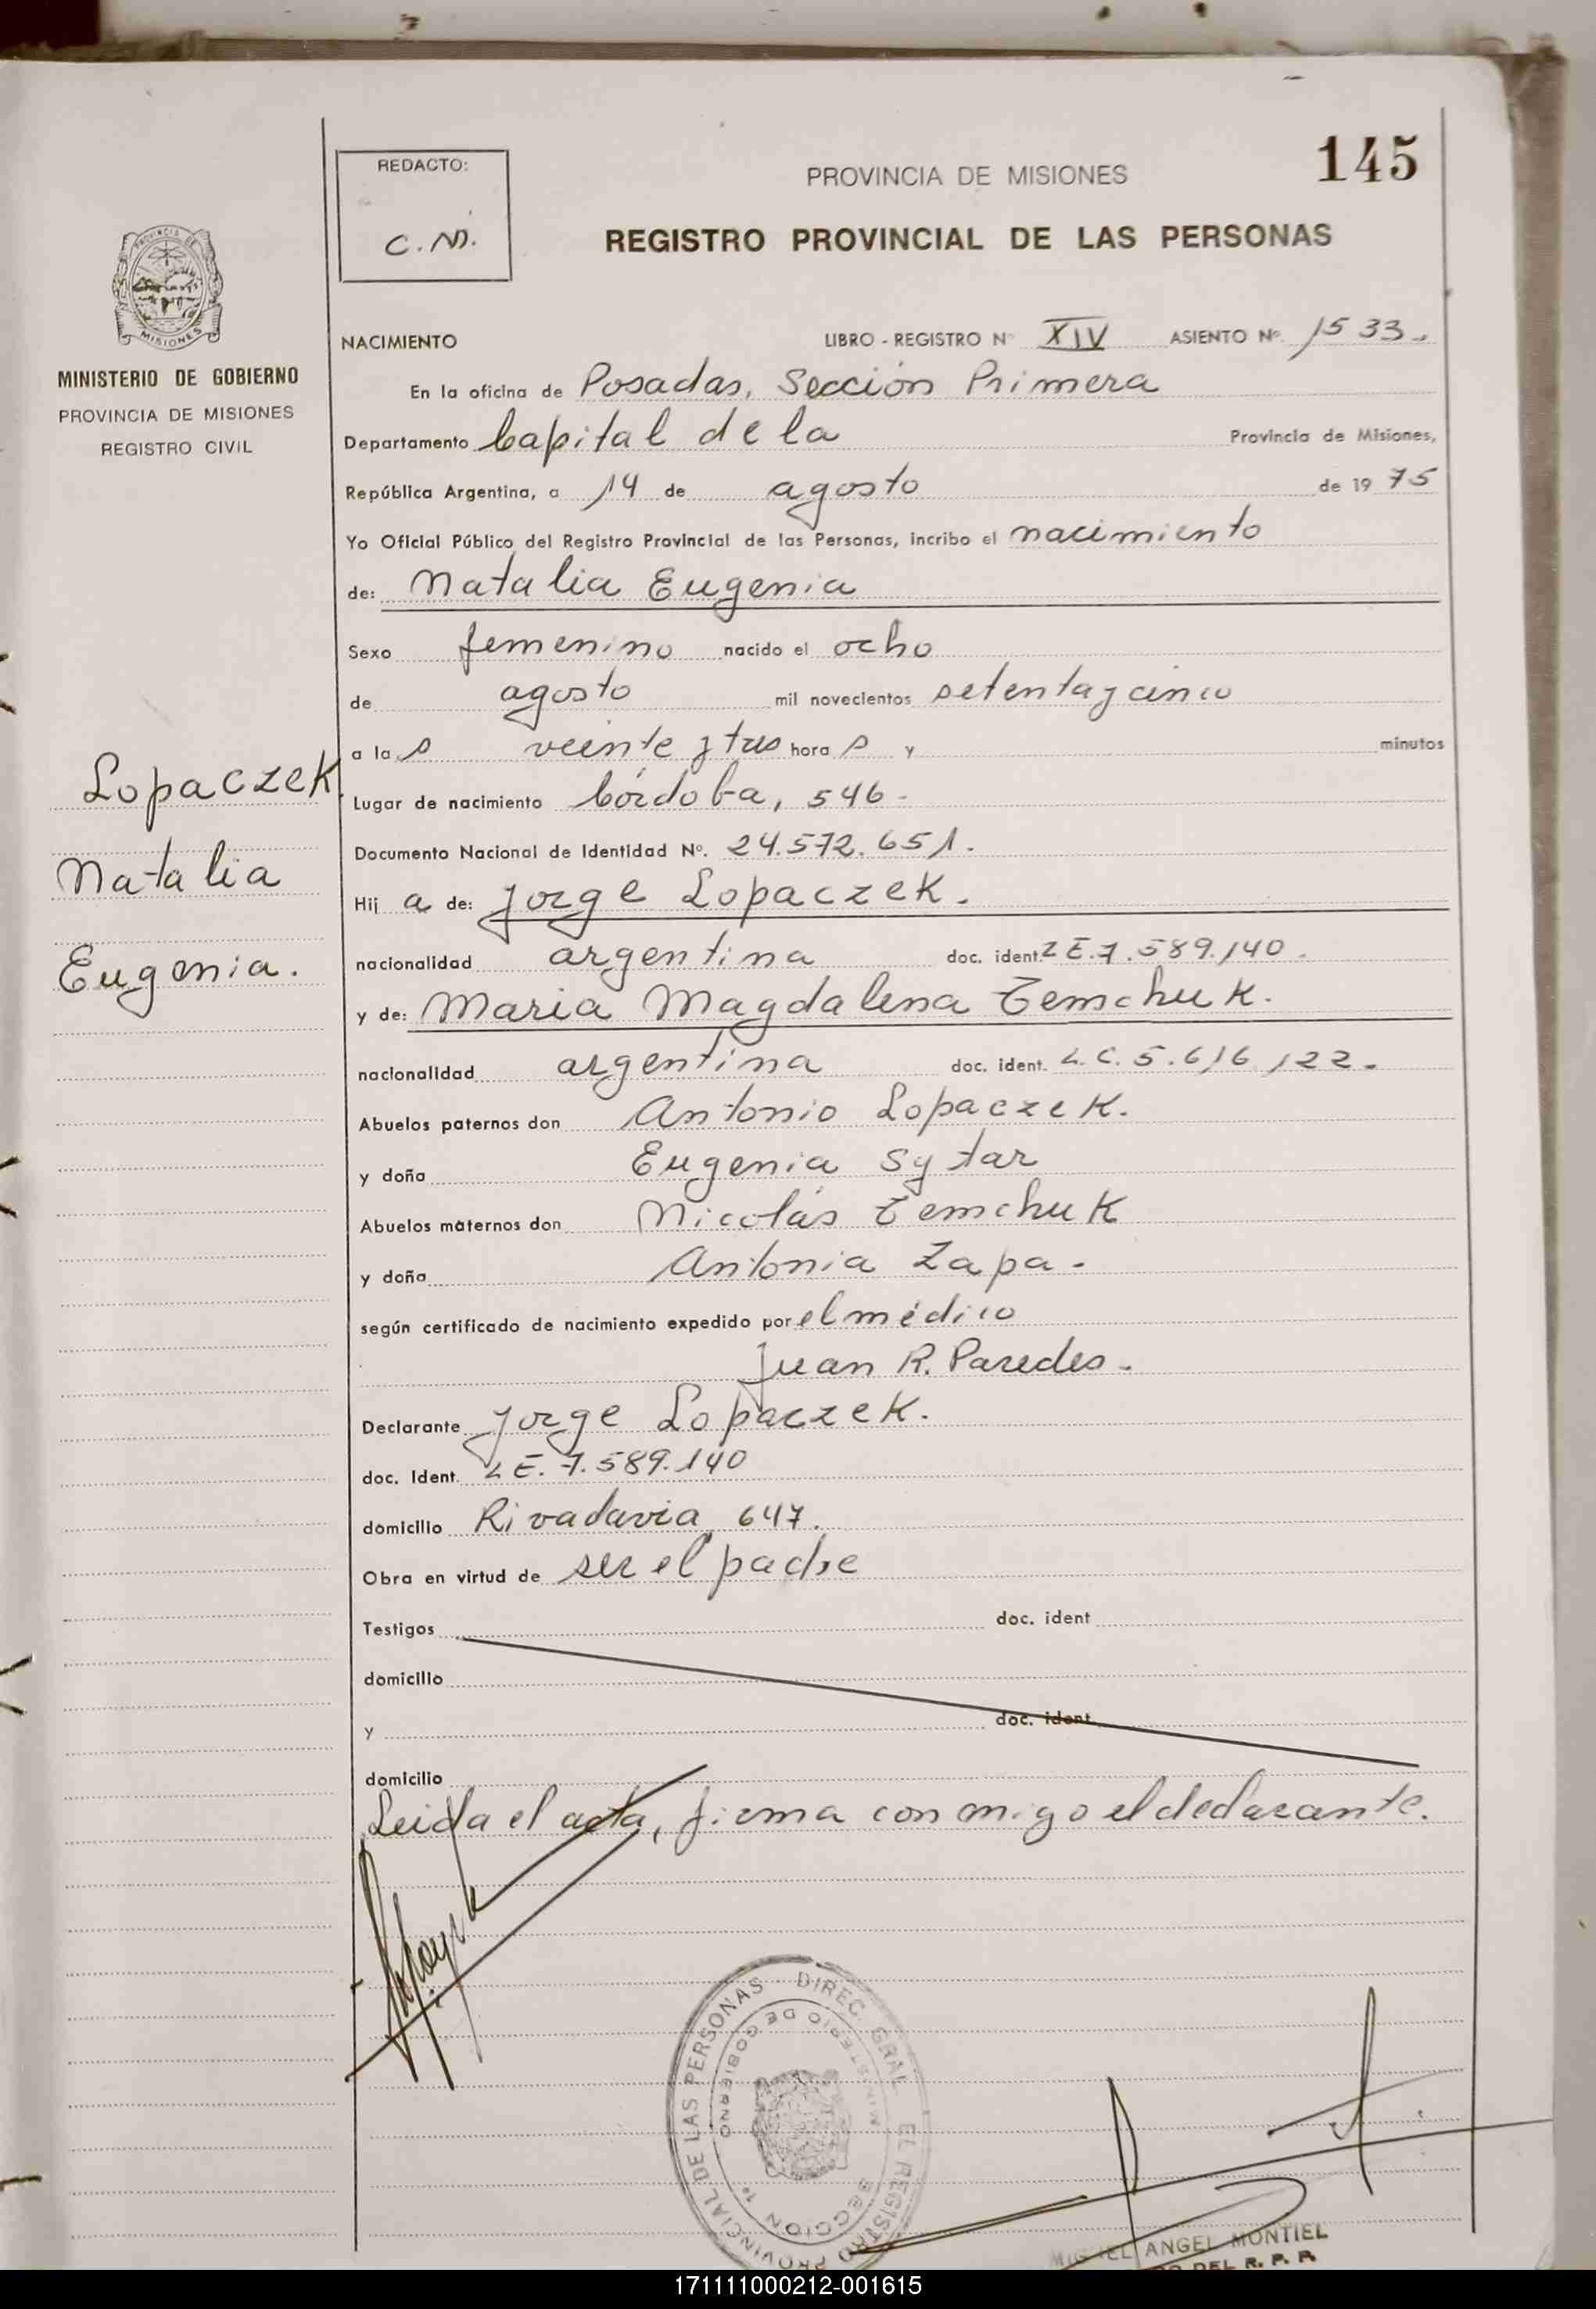 145
REDACTO:
C. M.
PROVINCIA DE MISIONES
REGISTRO PROVINCIAL DE LAS PERSONAS
PROVINCIA DE
MISIONES
MINISTERIO DE GOBIERNO
PROVINCIA DE MISIONES
REGISTRO CIVIL
Lopaczek
Natalia
Eugenia.
NACIMIENTO LIBRO - REGISTRO N° XIV ASIENTO N° 1533.
En la oficina de Posadas, Sección Primera
Departamento Capital de la Provincia de Misiones,
República Argentina, a 14 de agosto de 1975
Yo Oficial Público del Registro Provincial de las Personas, incribo el nacimiento
de: Natalia Eugenia
Sexo femenino nacido el ocho
de agosto mil novecientos setenta y cinco
a las veinte y tres horas y minutos
Lugar de nacimiento Córdoba, 546.
Documento Nacional de Identidad N°. 24.572.651.
Hija de: Jorge Lopaczek.
nacionalidad argentina doc. ident. L E. 7.589.140.
y de: Maria Magdalena Temchuk.
nacionalidad argentina doc. ident. L. C. 5.616.122.
Abuelos paternos don Antonio Lopaczek.
y doña Eugenia Sytar
Abuelos maternos don Nicolás Temchuk
y doña Antonia Zapa.
según certificado de nacimiento expedido por el médico
Juan R. Paredes.
Declarante Jorge Lopaczek.
doc. Ident. L E. 7.589.140
domicilio Rivadavia 647.
Obra en virtud de ser el padre
Testigos doc. ident
domicilio
y doc. ident
domicilio
Leida el acta, firma conmigo el declarante.
DIREC. GRAL EL REGISTRO PROVINCIAL DE LAS PERSONAS
MINISTERIO DE GOBIERNO
SECCION 1ª
MIGUEL ANGEL MONTIEL
DEL R. P. P.
171111000212-001615